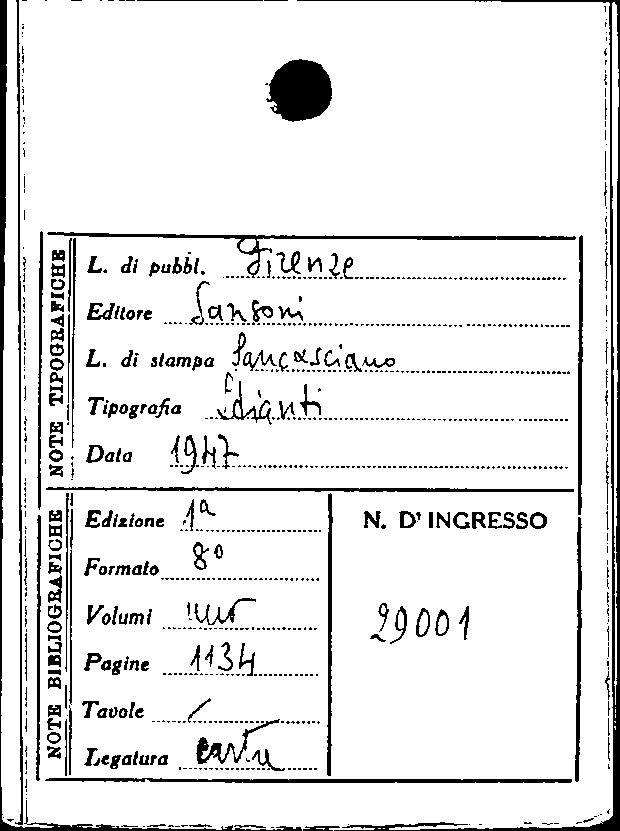 NOTE TIPOGRAFICHE
L. di pubbl. Firenze
Editore Sansoni
L. di stampa Sancasciano
Tipografia
Data 1947
NOTE BIBLIOGRAFICHE
Edizione 1a
Formato 8°
Volumi uno
Pagine 1134
Tavole /
Legatura carta
N. D' INGRESSO
29001